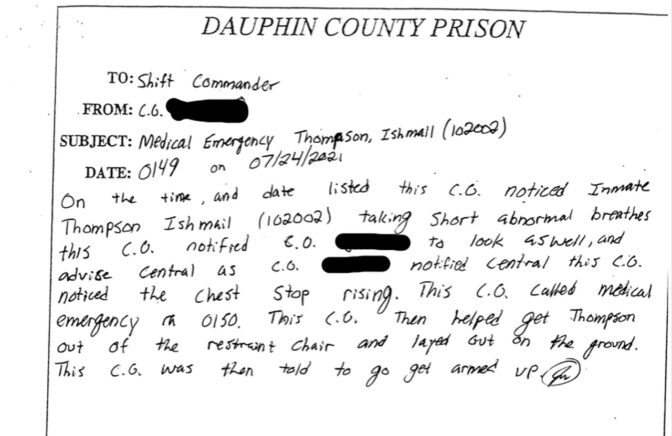 DAUPHIN COUNTY PRISON
TO: Shift Commander
FROM: C.O.
SUBJECT: Medical Emergency Thompson, Ishmail (102002)
DATE: 0149 on 07/24/2021
On the time, and date listed this C.O. noticed Inmate
Thompson Ishmail (102002) taking Short abnormal breathes
this C.O. notified C.O. to look aswell, and
advise central as C.O. notified central this C.O.
noticed the chest stop rising. This C.O. called medical
emergency @ 0150. This C.O. Then helped get Thompson
out of the restraint chair and layed out on the ground.
This C.O. was then told to go get armed up.